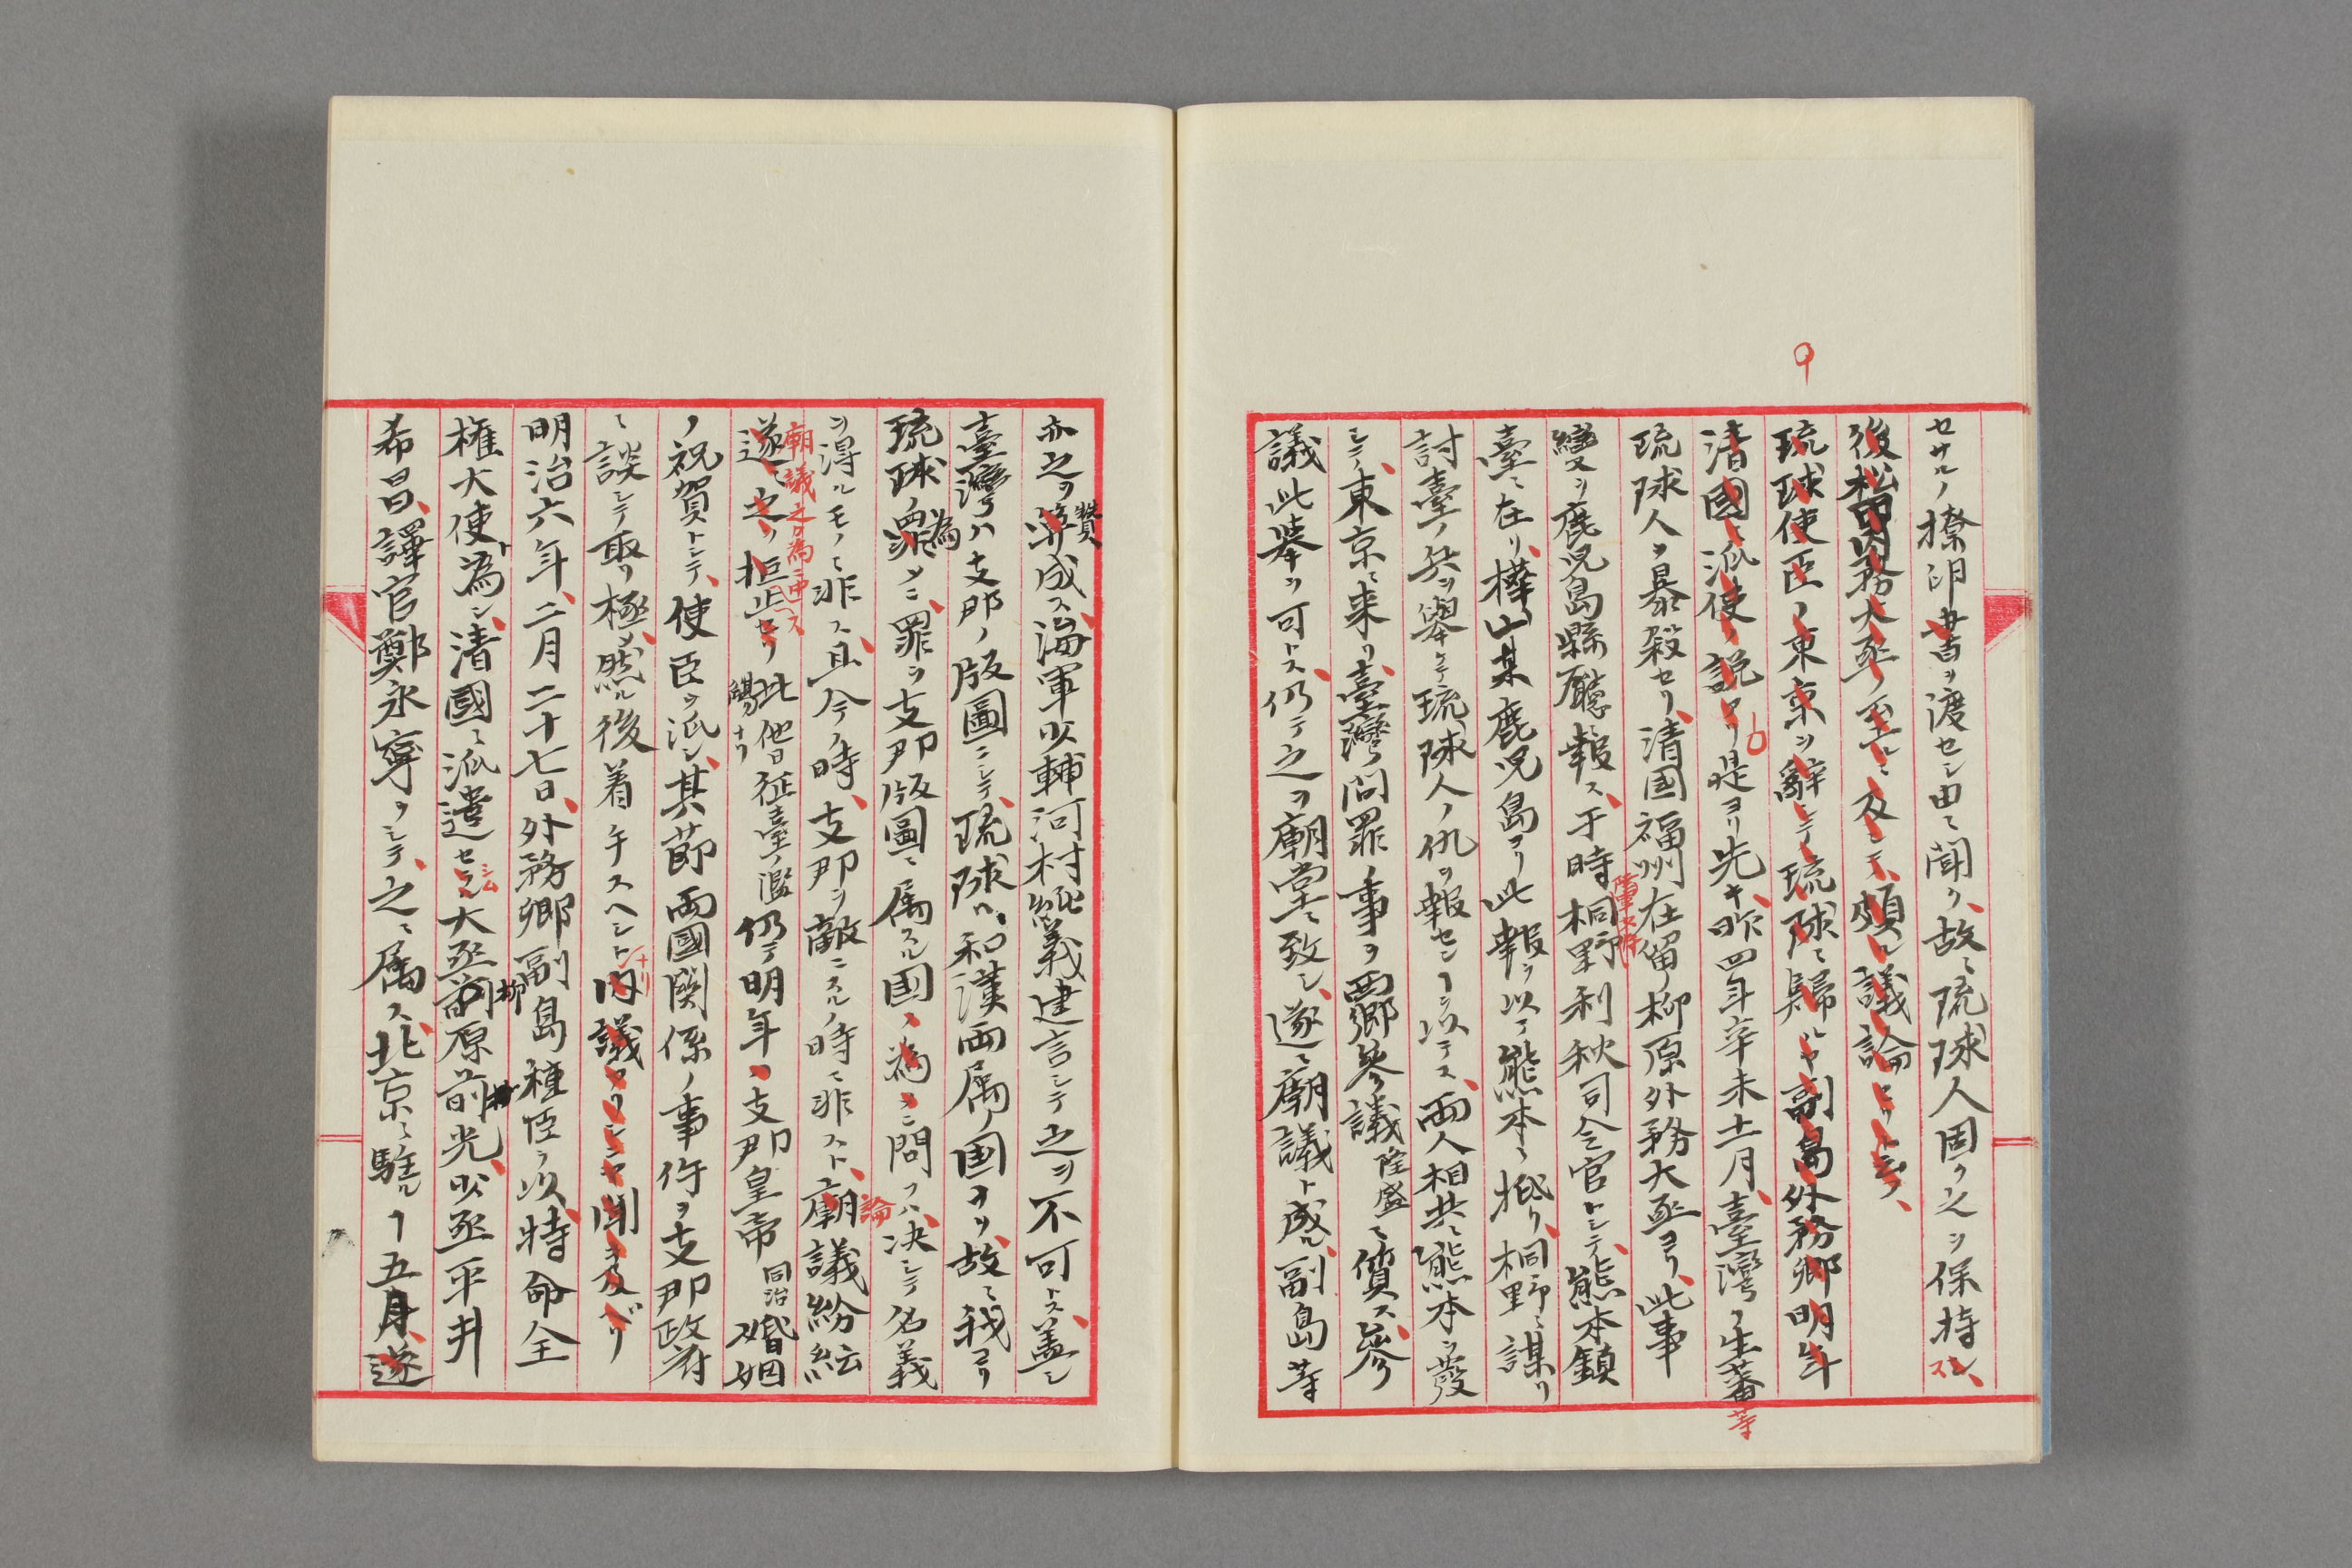 セサルノ條印書ヲ渡セシ由ニ聞ク、故ニ琉球人固ク之ヲ保持ス、
後松田内務大丞ノ至ルニ及ンテ、頗ル議論セリト云フ、
琉球使臣ノ東京ヲ辭シテ琉球ニ歸ルヤ副島外務卿明年
清國ニ派使ノ説アリ是ヨリ先キ、昨四年辛未十一月、臺灣ノ生蕃等
琉球人ヲ暴殺セリ、清国福州在留ノ柳原外務大丞ヨリ、此事
變ヲ鹿児島縣廳ニ報ス、于時桐野利秋司令官トシテ、熊本鎮
臺ニ在リ、樺山某鹿児島ヨリ此報ヲ以テ熊本ニ抵リ、桐野ニ謀リ
討臺ノ兵ヲ舉ケテ琉球人ノ仇ヲ報センヿヲ以テス、両人相共ニ熊本ヲ發
シテ、東京ニ来リ、臺灣問罪ノ事ヲ西郷参議隆盛ニ質ス、参
議此挙ヲ可トス、仍テ之ヲ廟堂ニ致シ、遂ニ廟議ト成ル、副島等
亦之ヲ賛成ス、海軍少輔河村純義建言シテ之ヲ不可トス、蓋シ
臺灣ハ支那ノ版圖ニシテ、琉球ハ、和漢両属ノ国ナリ、故ニ我ヨリ
琉球ノ為メニ、罪ヲ支那版圖ニ属スル國ノ為メニ問フハ、決シテ名義
ヲ得ルモノニ非ス、且今ノ時、支那ヲ敵ニスルノ時ニ非スト、廟議紛紜
廟議之カ為ニ中ス
論
遂ニ之ヲ拒止セリ此他日征臺ノ濫觴ナリ仍テ明年ヲ支那皇帝同治婚姻
ノ祝賀トシテ、使臣ヲ派シ、其節両國関係ノ事件ヲ支那政府
ニ談シテ取リ極メ、然ル後着手スヘシトナリ内議アリシヤニ聞キ及ベリ
明治六年、二月二十七日、外務卿副島種臣ヲ以、特命全
権大使ト為シ、清國ニ派遣セシム大丞柳原前光、少丞平井
希昌、譯官鄭永寧ヲシテ、之ニ属ス、北京ニ駐ルヿ五月、遂